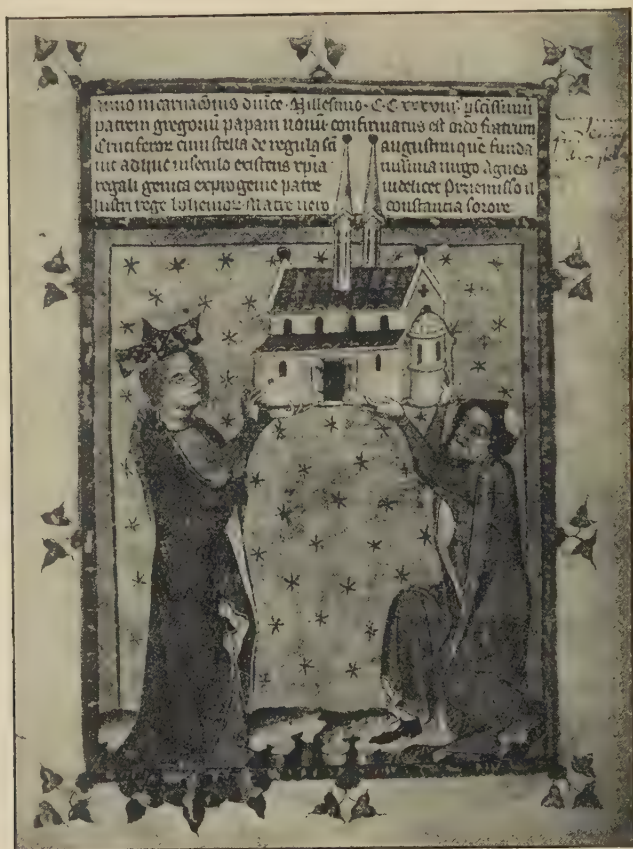 anno incarnacōnis dn̄ice · Millesimo · C · C · xxxviii · p̱ sc̄issimū
patrem gregoriū papam nonū confirmatus est ordo fratrum
Cruciferoꝝ cum stella de regula sc̄i augustini quē funda
uit adhuc in seculo existens xp̄ia nissima uirgo Agnes
regali genita ex progenie patre uidelicet Prziemisło il
lustri rege bohemoꝝ Matre uero constancia sorore